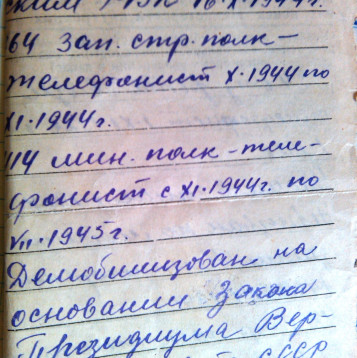 16.X.1944г.
64 зап. стр. полк -
телефонист X.1944 по
XI.1944г.
114 мин. полк - теле-
фонист с XI.1944г. по
VII.1945г.
Демобилизован на
основании Закона
Президиума Вер-
СССР